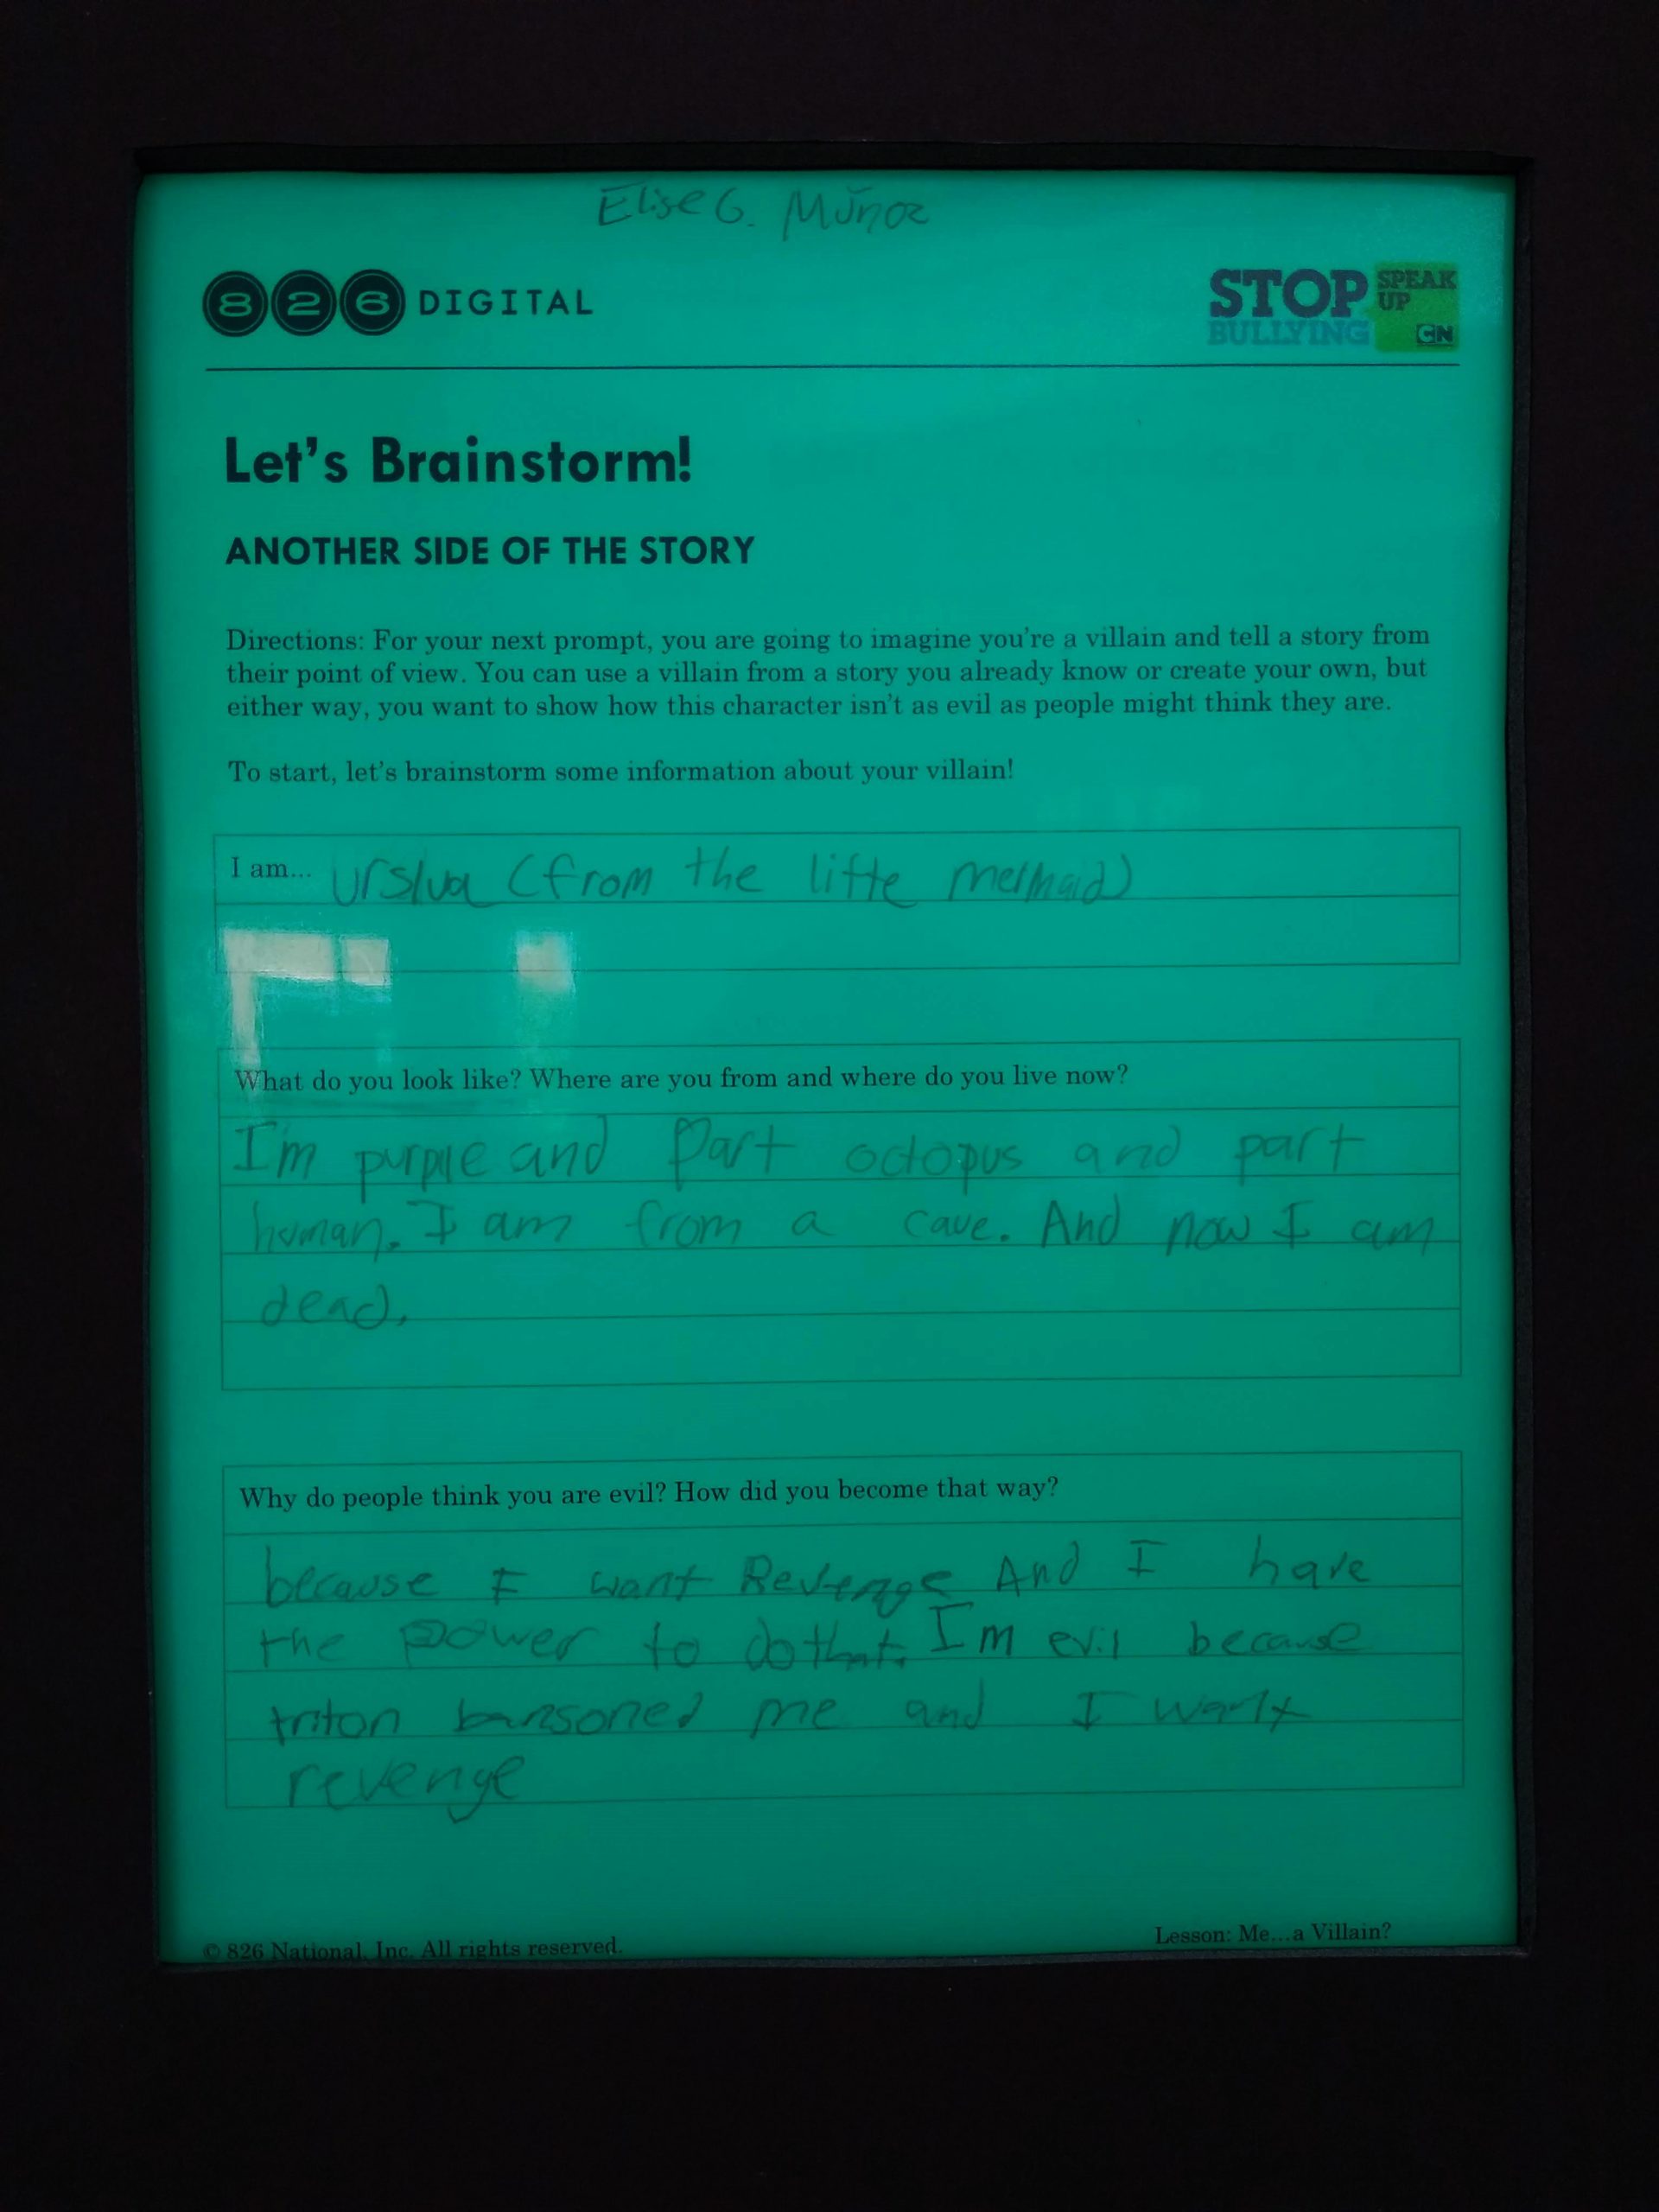 Elise G. Muñoz
826 DIGITAL
STOP SPEAK
BULLYING UP
CN
Let's Brainstorm!
ANOTHER SIDE OF THE STORY
Directions: For your next prompt, you are going to imagine you're a villain and tell a story from
their point of view. You can use a villain from a story you already know or create your own, but
either way, you want to show how this character isn't as evil as people might think they are.
To start, let's brainstorm some information about your villain!
I am... Urslua (from the litte mermaid)
What do you look like? Where are you from and where do you live now?
I'm purple and Part octopus and part
human. I am from a cave. And now I am
dead.
Why do people think you are evil? How did you become that way?
because I want Revenge And I have
the power to do that. I'm evil because
triton bansoned me and I want
revenge
© 826 National, Inc. All rights reserved.
Lesson: Me...a Villain?